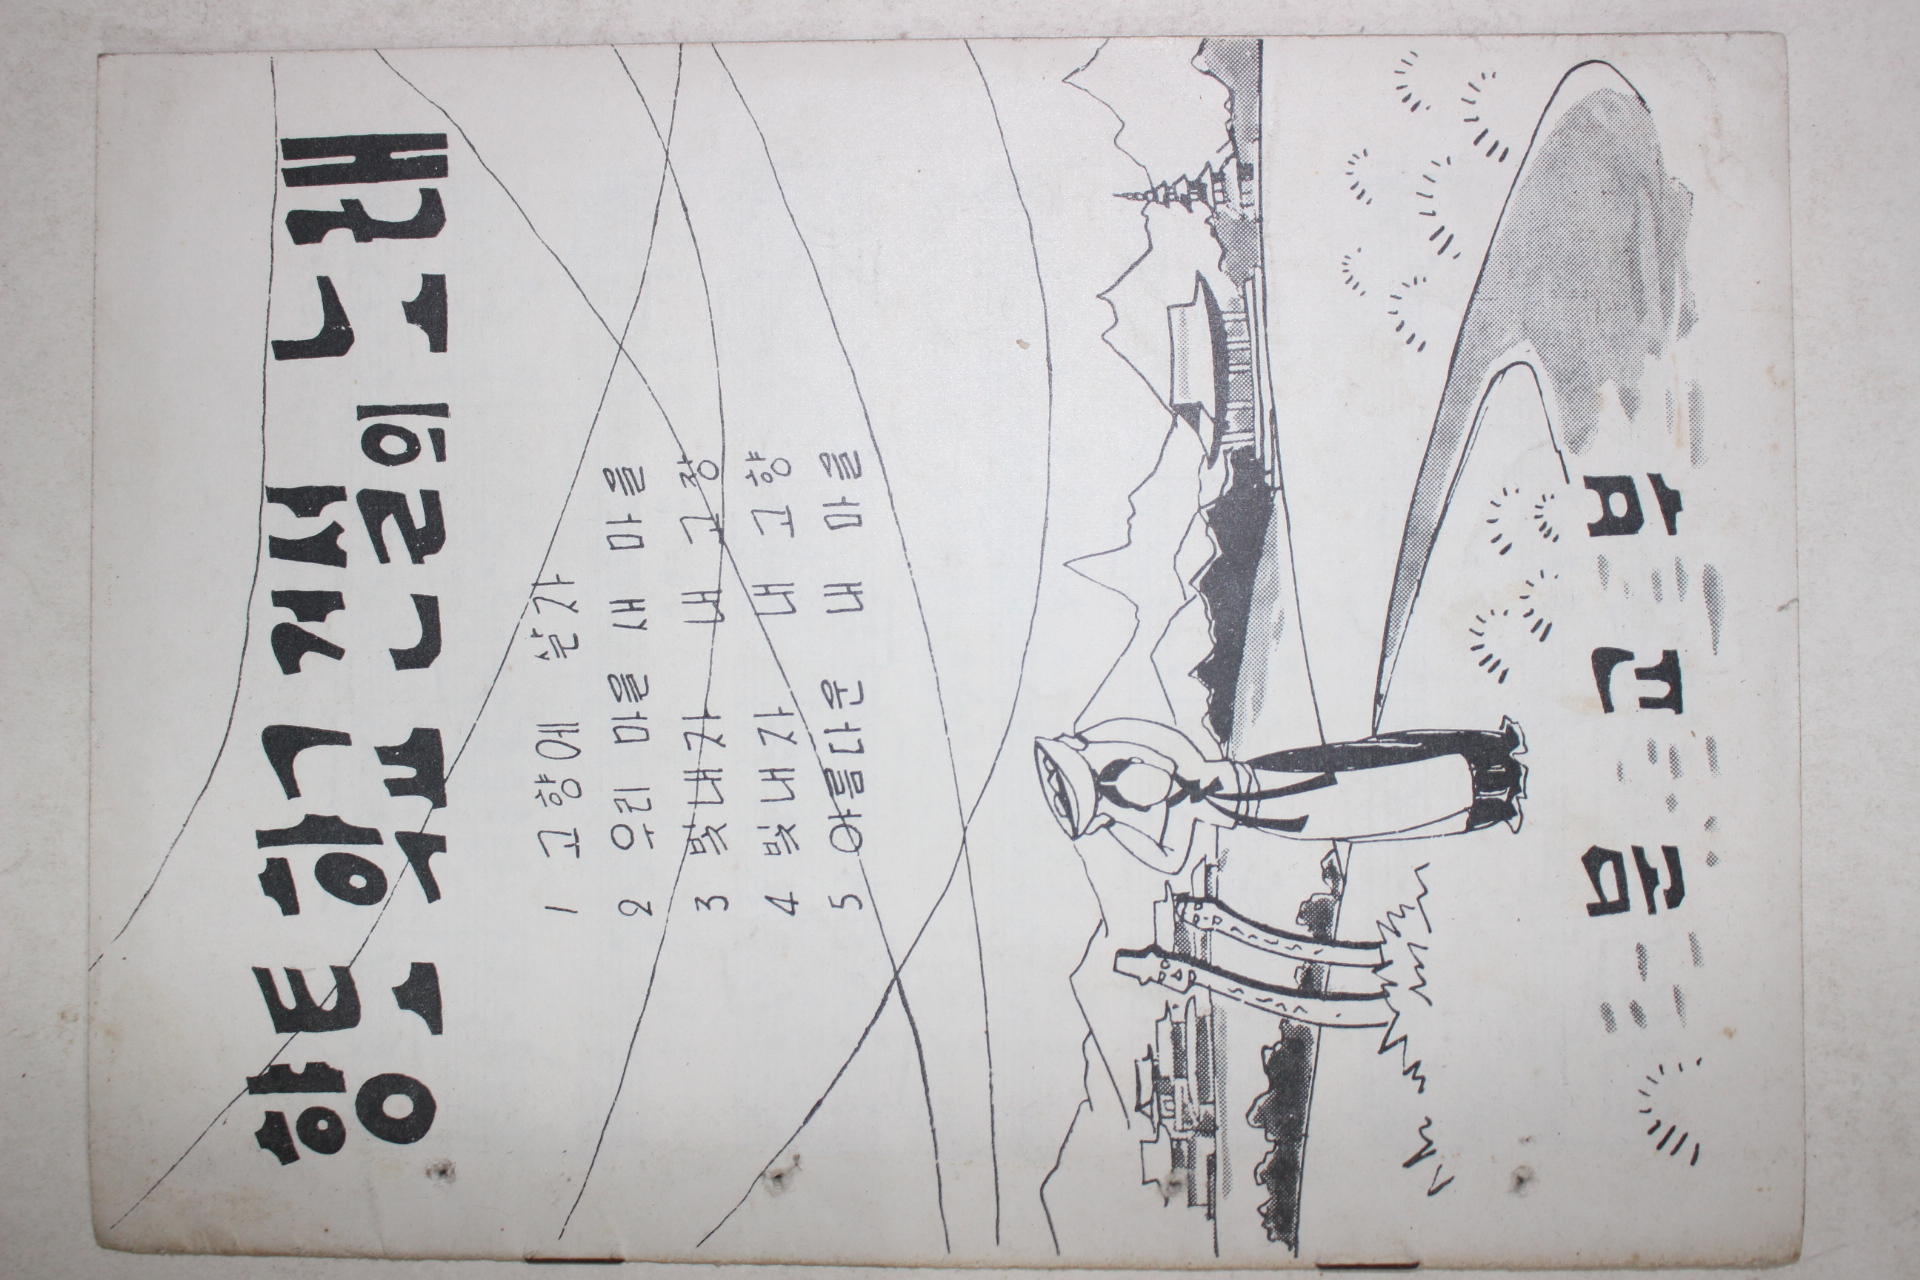 향토학교 건설의 노래
1 고향에 살자
2 우리 마을 새 마을
3 빛내자 내 고장
4 빛내자 내 고향
5 아름다운 내 마을
문교부